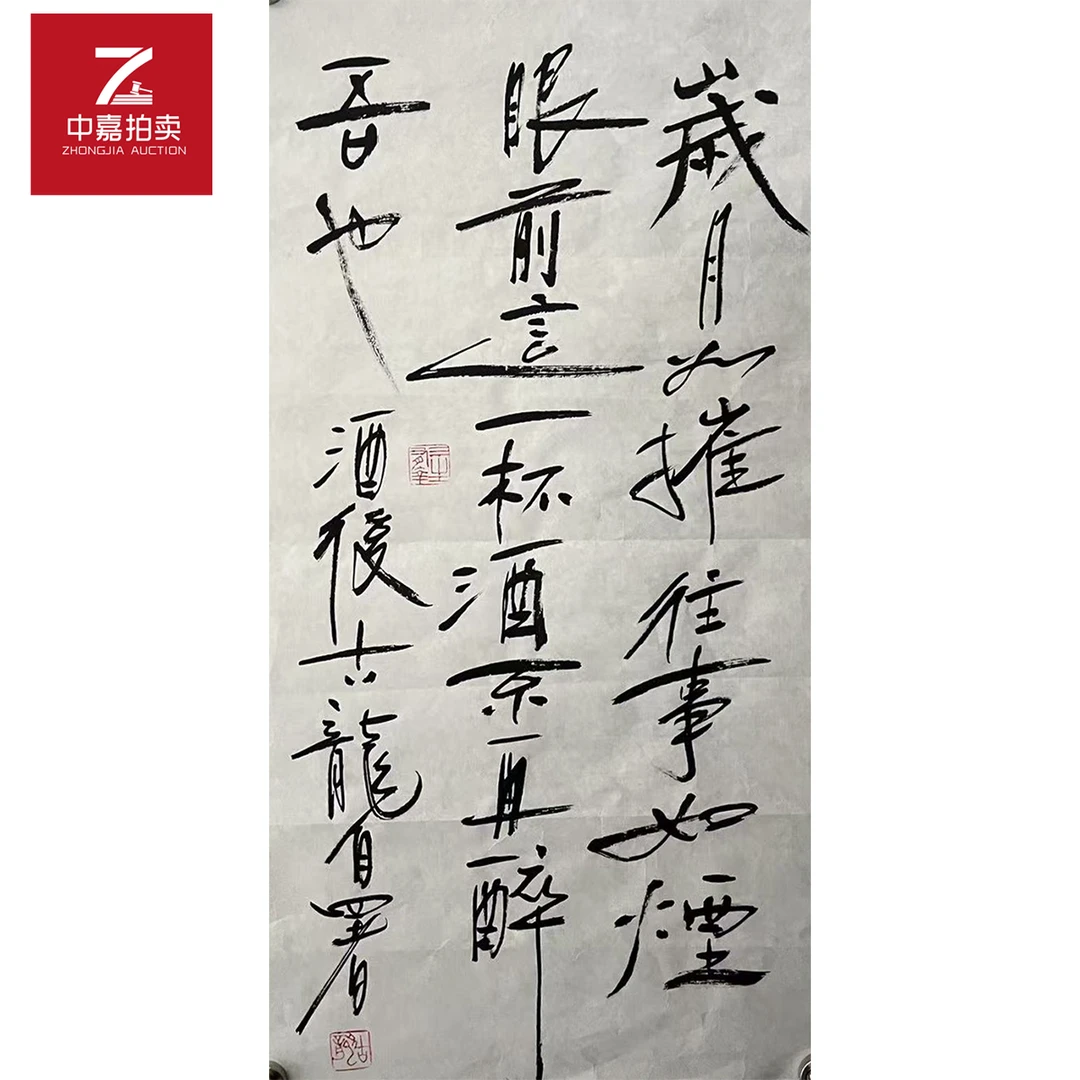 中嘉拍卖
ZHONGJIA AUCTION
歲月如摧往事如煙
眼前這一杯酒不再醉
吾也
酒後古龍自署